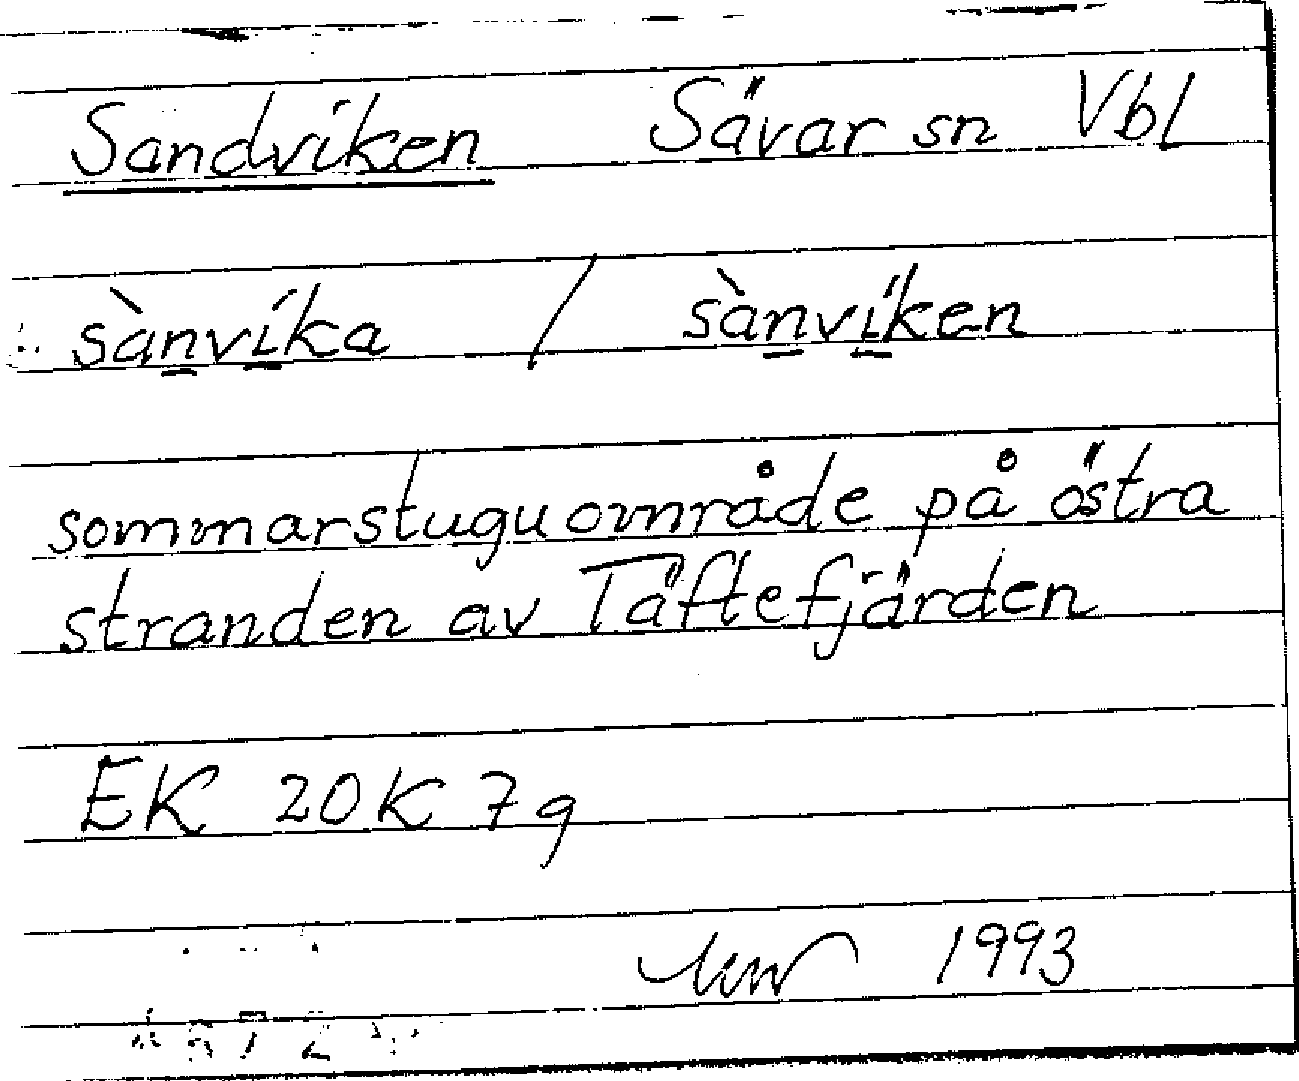 Sandviken Sävar sn Vbl
sànvíka / sànvíken
sommarstuguområde på östra
stranden av Täftefjärden
EK 20K 7g
1993